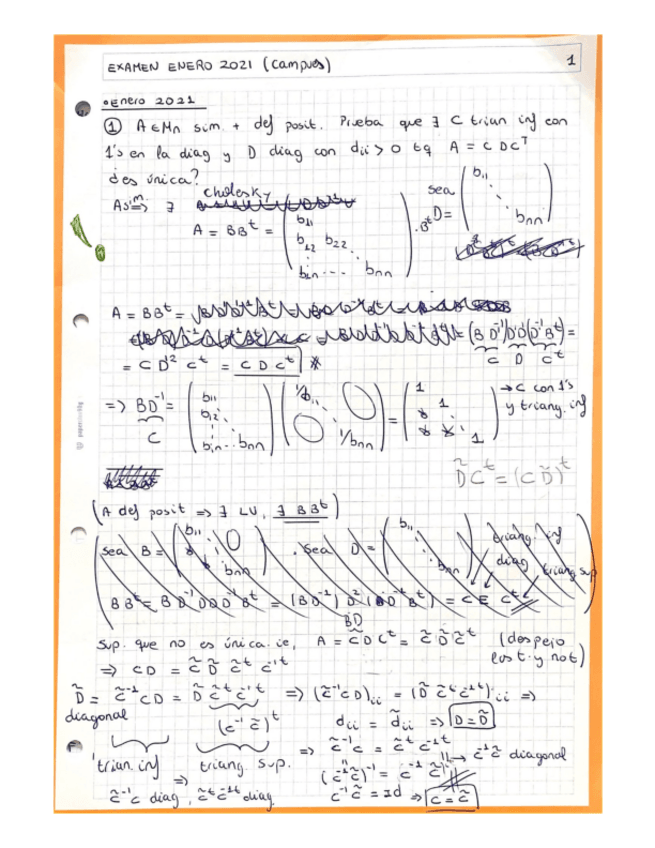 EXAMEN ENERO 2021 (Campus) 1
• Enero 2021
① A ∈ Mn sim. + def posit. Prueba que ∃ C trian inf con
1's en la diag y D diag con dii > 0 tq A = C D C^T
¿es única?
A sim. ⇒ ∃ cholesky
A = BB^t = ( b11 b12 b22 ... bin ... bnn ) · B^t sea D = ( b11 ... bnn )
A = BB^t = (B D^-1) D·D (D^-1 B^t) =
C D C^t
= C D² C^t = C D C^t *
=> B D^-1 = ( b11 b12 ... bin ... bnn ) ( 1/b11 ... 1/bnn ) = ( 1 1 * * * 1 ) → C con 1's y triang. inf
C
D̃ C^t = (C D̃)^t
(A def posit => ∃ LU, ∃ BB^t)
sea B = ( b11 0 * bnn ) . sea D = ( b11 ... bnn ) triang. inf
diag
triang sup
BB^t = B D^-1 D D D^-1 B^t = (B D^-1) D² (D^-t B^t) = C E C^t
Sup. que no es única. ie, A = C D C^t = C̃ D̃ C̃^t (despejo los t. y not)
=> CD = C̃ D̃ C̃^t C^-t
D̃ = C̃^-1 C D = D̃ C̃^t C^-t => (C̃^-1 C D)ii = (D̃ C̃^t C^-t)ii =>
diagonal (C^-1 C̃)^t dii = d̃ii => D = D̃
trian. inf => triang. sup. => C̃^-1 C = C̃^t C^-1t → C^-1 C̃ diagonal
(C^-1 C̃)^-1 = C^-1 C̃
C̃^-1 C diag, C̃^t C^-1t diag. C^-1 C̃ = Id => C = C̃